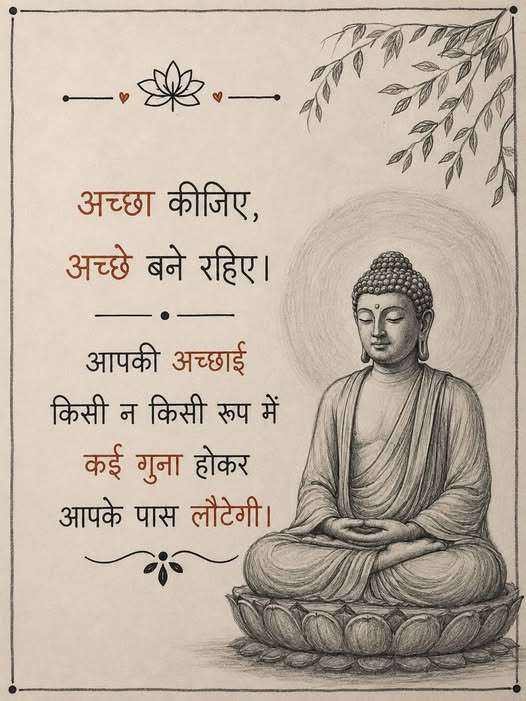 अच्छा कीजिए,
अच्छे बने रहिए।
आपकी अच्छाई
किसी न किसी रूप में
कई गुना होकर
आपके पास लौटेगी।